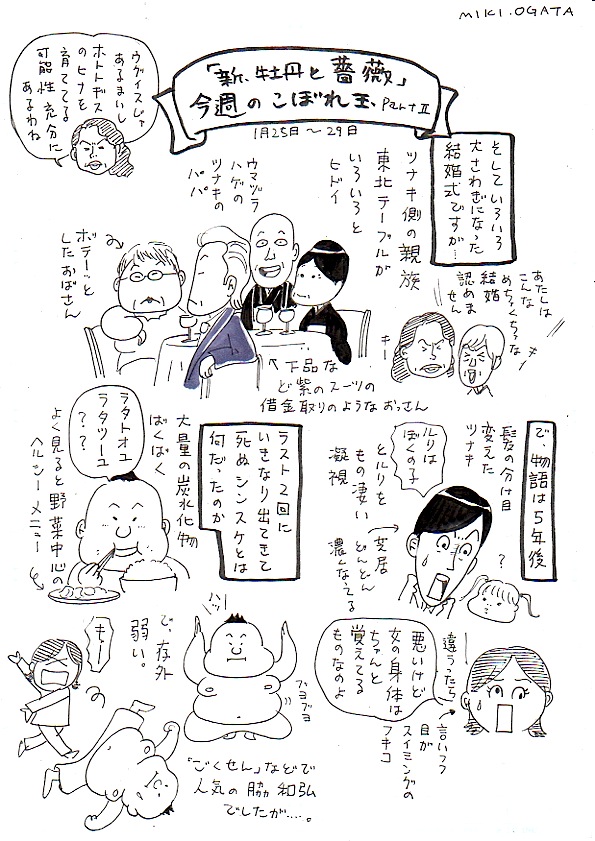 MIKI.OGATA
「新、牡丹と薔薇」
今週のこぼれ玉、Part Ⅱ
1月25日～29日
ウグイスじゃ
あるまいし
ホトトギス
のヒナを
育ててる
可能性充分に
あるわね
そしていろいろ
大さわぎになった
結婚式ですが…
ツナキ側の親族
東北テーブルが
いろいろと
ヒドイ
ウマヅラ
ハゲの
ツナキの
パパ
ボテーッと
したおばさん
あたしは
こんな
めちゃくちゃな
結婚
認めま
せん
キー
キー
下品な
ど紫のスーツの
借金取りのようなおっさん
で、物語は5年後
髪の分け目
変えた
ツナキ
ルリは
ぼくの子
とルリを
もの凄い
凝視
芝居
どんどん
濃くなえる
?
ラスト2回に
いきなり出てきて
死ぬシンスケとは
何だったのか
大量の炭水化物
ばくばく
ラタトオユ
ラタツーユ
??
よく見ると野菜中心の
ヘルシーメニュー
違うったら
悪いけど
女の身体は
ちゃんと
覚えてる
ものなのよ
言いつつ
目が
スイミングの
フキコ
で、存外
弱い。
もー
パンッ
ブヨブヨ
「ごくせん」などで
人気の脇 和弘
でしたが……。